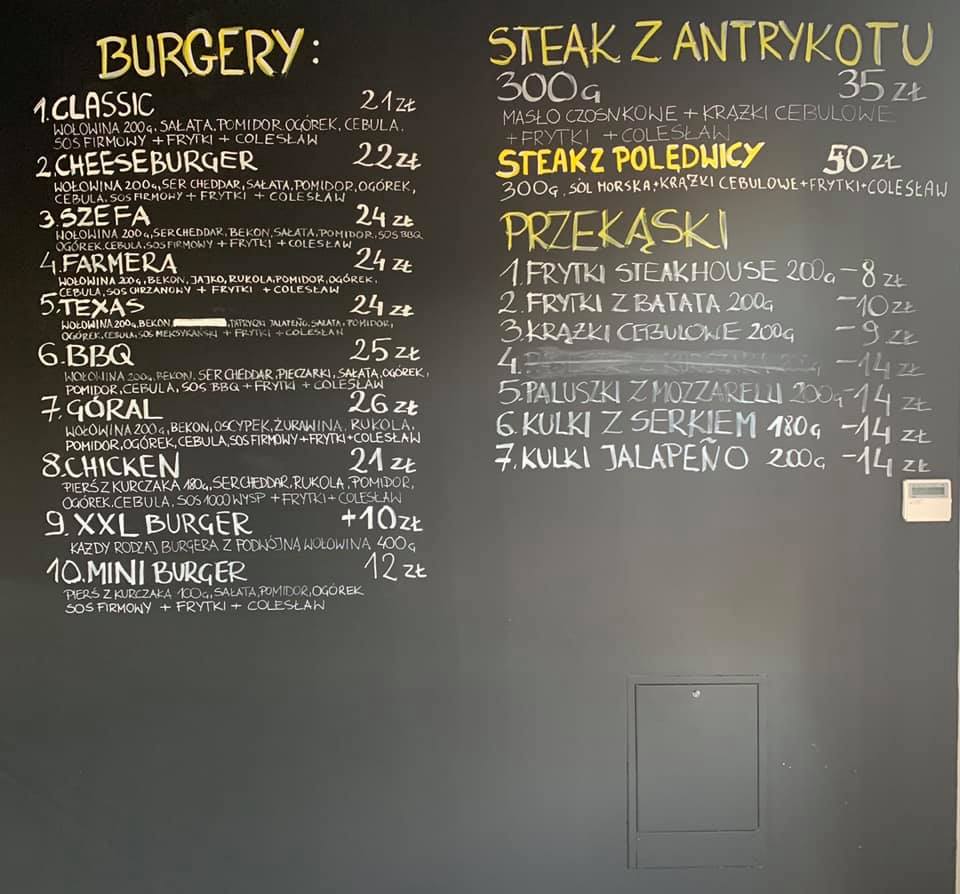 BURGERY:
1. CLASSIC 21 ZŁ
WOŁOWINA 200G, SAŁATA, POMIDOR, OGÓREK, CEBULA,
SOS FIRMOWY + FRYTKI + COLESŁAW
2. CHEESEBURGER 22 ZŁ
WOŁOWINA 200G, SER CHEDDAR, SAŁATA, POMIDOR, OGÓREK,
CEBULA, SOS FIRMOWY + FRYTKI + COLESŁAW
3. SZEFA 24 ZŁ
WOŁOWINA 200G, SER CHEDDAR, BEKON, SAŁATA, POMIDOR, SOS BBQ
OGÓREK, CEBULA, SOS FIRMOWY + FRYTKI + COLESŁAW
4. FARMERA 24 ZŁ
WOŁOWINA 200G, BEKON, JAJKO, RUKOLA, POMIDOR, OGÓREK,
CEBULA, SOS CHRZANOWY + FRYTKI + COLESŁAW
5. TEXAS 24 ZŁ
WOŁOWINA 200G, BEKON, PAPRYCZKI JALAPEÑO, SAŁATA, POMIDOR,
OGÓREK, CEBULA, SOS MEKSYKAŃSKI + FRYTKI + COLESŁAW
6. BBQ 25 ZŁ
WOŁOWINA 200G, BEKON, SER CHEDDAR, PIECZARKI, SAŁATA, OGÓREK,
POMIDOR, CEBULA, SOS BBQ + FRYTKI + COLESŁAW
7. GÓRAL 26 ZŁ
WOŁOWINA 200G, BEKON, OSCYPEK, ŻURAWINA, RUKOLA,
POMIDOR, OGÓREK, CEBULA, SOS FIRMOWY + FRYTKI + COLESŁAW
8. CHICKEN 21 ZŁ
PIERŚ Z KURCZAKA 180G, SER CHEDDAR, RUKOLA, POMIDOR,
OGÓREK, CEBULA, SOS 1000 WYSP + FRYTKI + COLESŁAW
9. XXL BURGER +10 ZŁ
KAŻDY RODZAJ BURGERA Z PODWÓJNĄ WOŁOWINĄ 400G
10. MINI BURGER 12 ZŁ
PIERŚ Z KURCZAKA 100G, SAŁATA, POMIDOR, OGÓREK
SOS FIRMOWY + FRYTKI + COLESŁAW
STEAK Z ANTRYKOTU
300G 35 ZŁ
MASŁO CZOSNKOWE + KRĄŻKI CEBULOWE
+ FRYTKI + COLESŁAW
STEAK Z POLĘDWICY 50 ZŁ
300G, SÓL MORSKA + KRĄŻKI CEBULOWE + FRYTKI + COLESŁAW
PRZEKĄSKI
1. FRYTKI STEAKHOUSE 200G - 8 ZŁ
2. FRYTKI Z BATATA 200G - 10 ZŁ
3. KRĄŻKI CEBULOWE 200G - 9 ZŁ
4. - 14 ZŁ
5. PALUSZKI Z MOZZARELLI 200G - 14 ZŁ
6. KULKI Z SERKIEM 180G - 14 ZŁ
7. KULKI JALAPEÑO 200G - 14 ZŁ